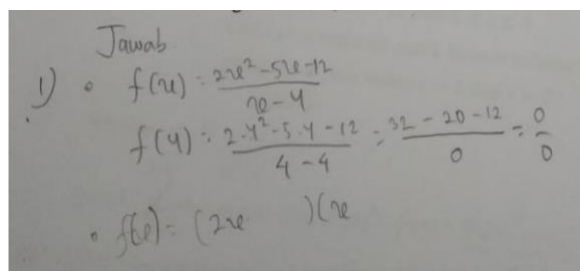 Jawab
1) • f(x) = 2x² - 5x - 12 / x - 4
f(4) = 2.4² - 5.4 - 12 / 4 - 4 = 32 - 20 - 12 / 0 = 0 / 0
• f(x) = (2x )(x